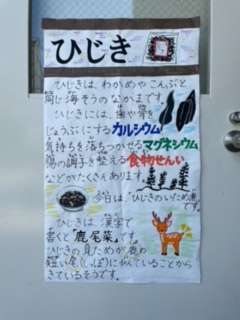 ひじき
ひじきは、わかめやこんぶと
同じ海そうのなかまです。
ひじきには、歯や骨を
じょうぶにするカルシウム
気持ちを落ちつかせるマグネシウム
腸の調子を整える食物せんい
などがたくさんあります。
今日は「ひじきのいため煮」
です。
ひじきは漢字で
書くと「鹿尾菜」です。
ひじきの見ためが鹿の
短い尾(しっぽ)に似ていることから
きているそうです。